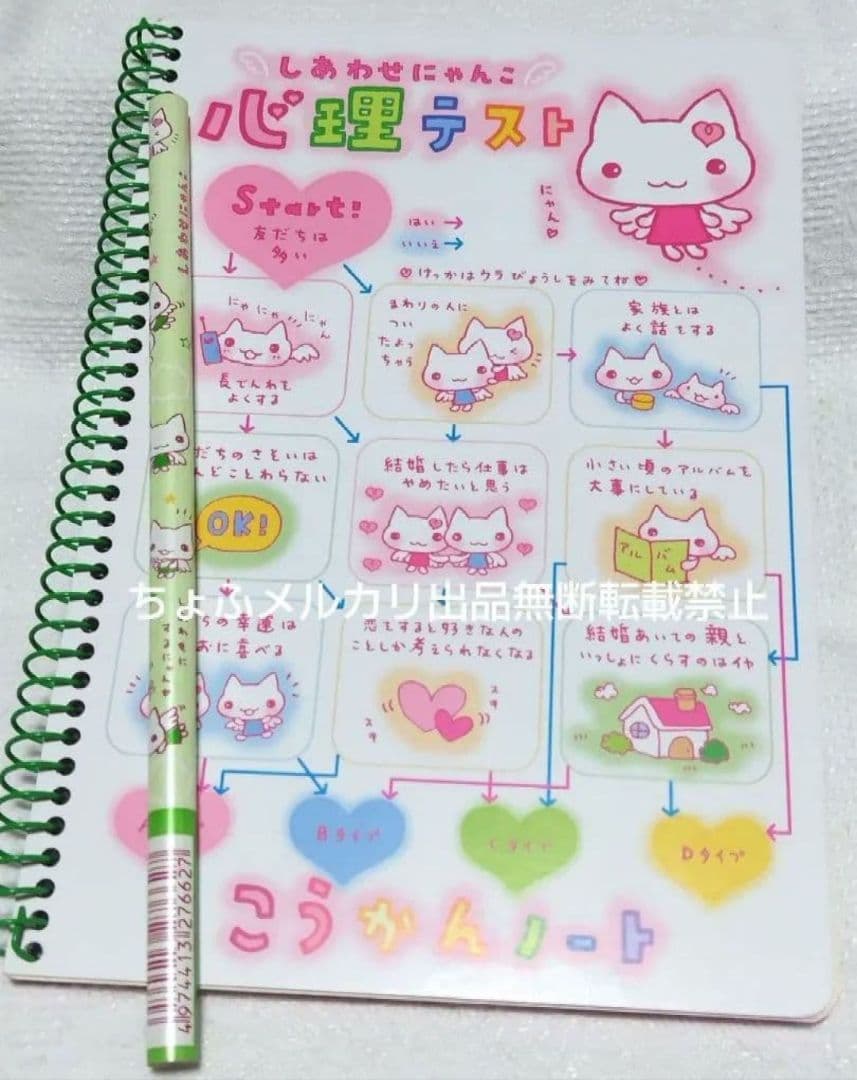 しあわせにゃんこ
心理テスト
Start!
友だちは
多い
はい→
いいえ→
にゃん♡
♡けっかはウラびょうしをみてね♡
にゃにゃにゃん
長でんわを
よくする
まわりの人に
つい
たよっ
ちゃう
家族とは
よく話をする
だちのさそいは
んどことわらない
OK!
結婚したら仕事は
やめたいと思う
小さい頃のアルバムを
大事にしている
アルバム
ちょふメルカリ出品無断転載禁止
の幸運は
おに喜べる
恋をすると好きな人の
ことしか考えられなくなる
スキ
スキ
結婚あいての親と
いっしょにくらすのはイヤ
Bタイプ
Cタイプ
Dタイプ
こうかんノート
しあわせにゃんこ
4974413276627